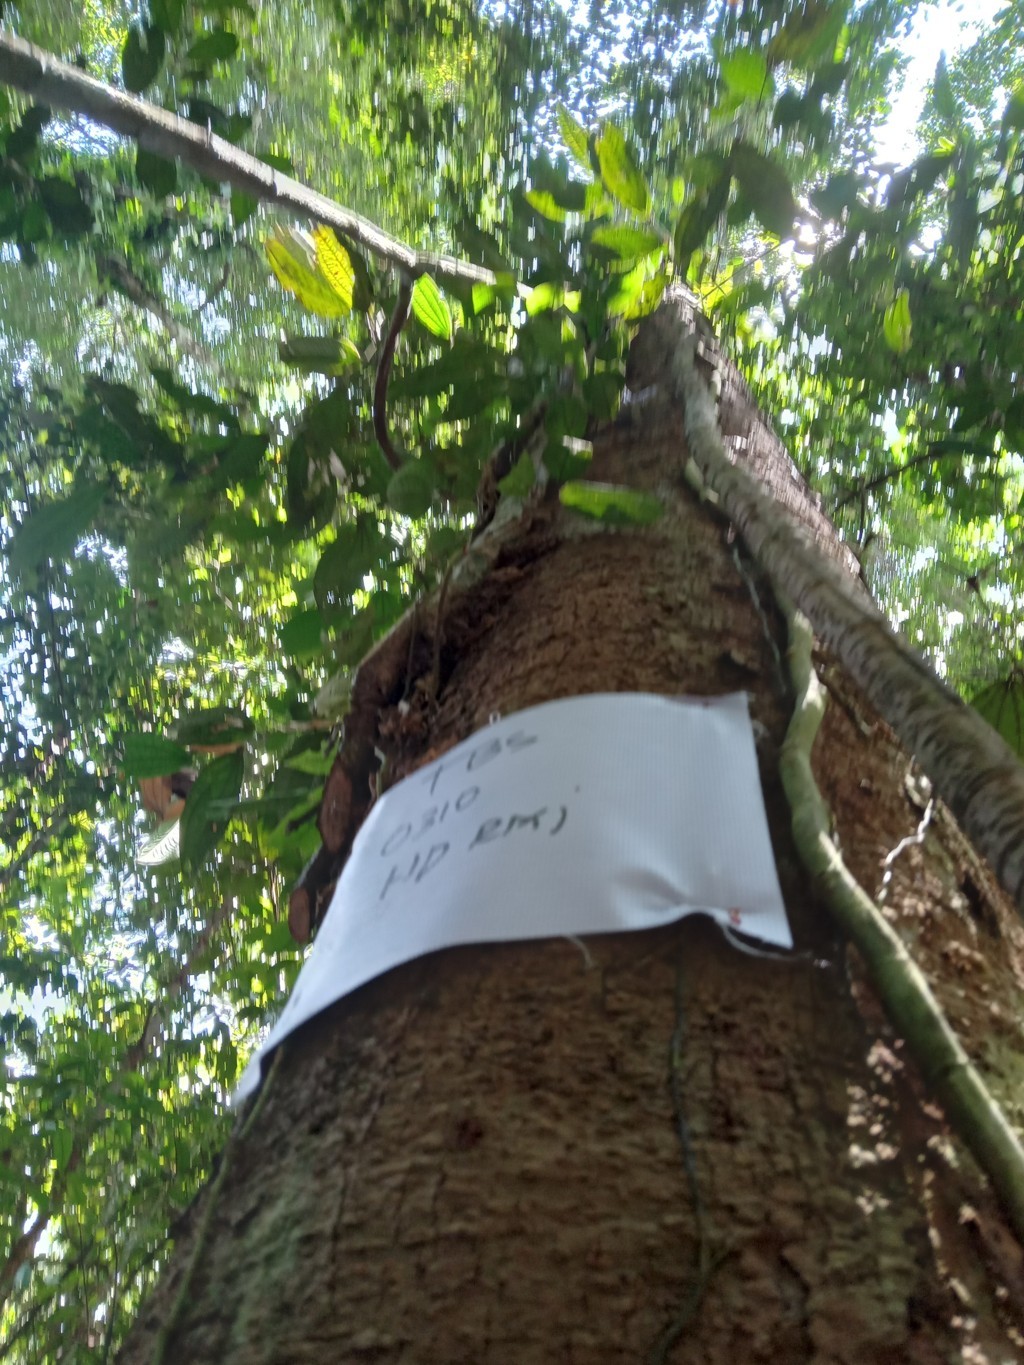 TBS
0310
HD RMJ